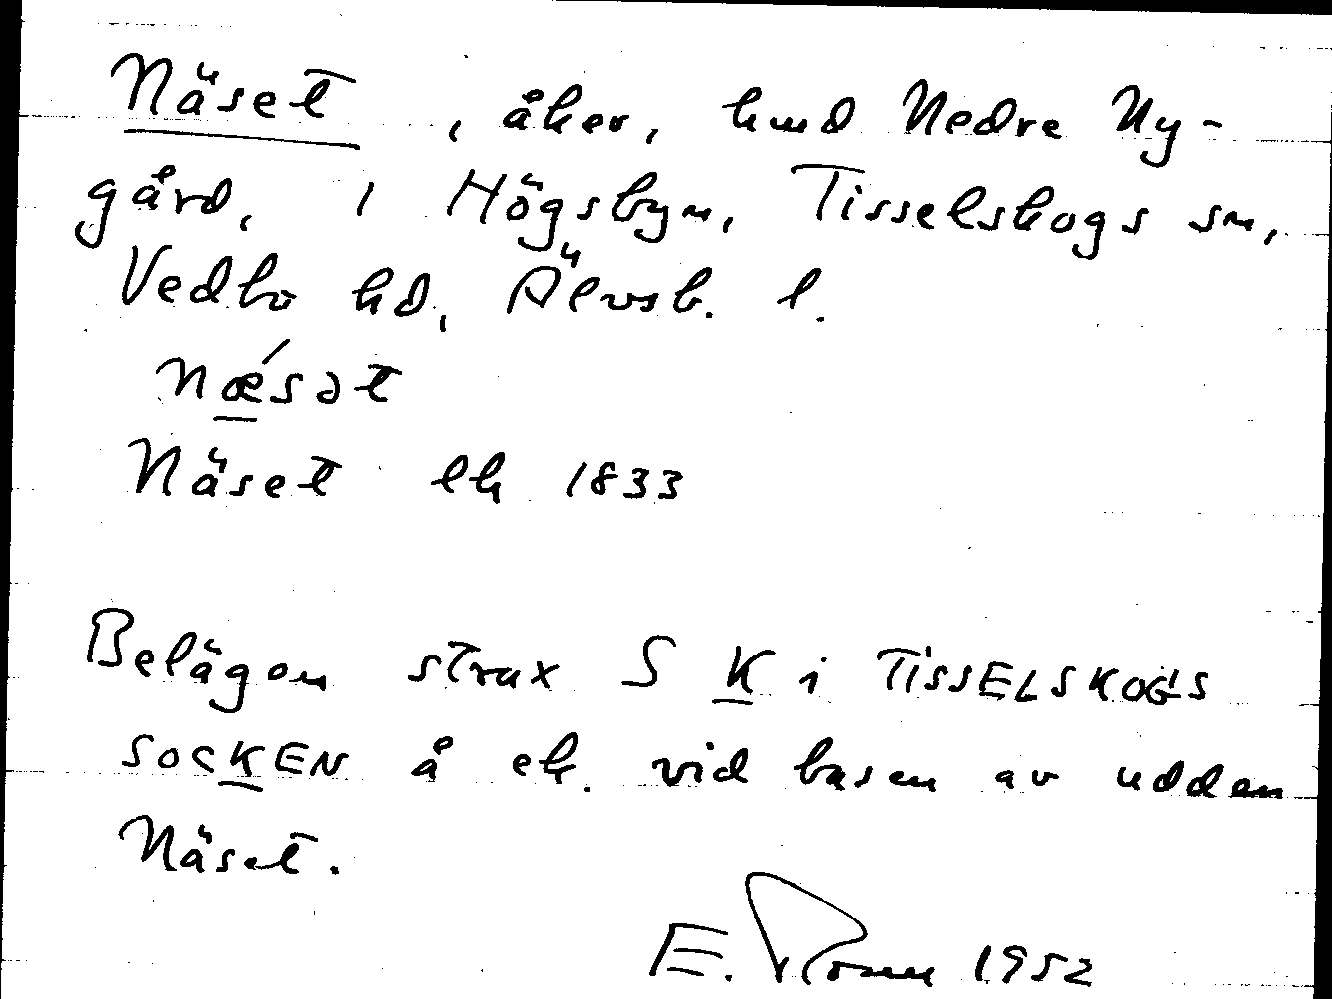 Näset, åker, hmd Nedre Ny-
gård, i Högsbyn, Tisselskogs sn,
Vedbo hd, Älvsb. l.
nǽsət
Näset lk 1833
Belägen strax S K i TISSELSKOGS
SOCKEN å ek. vid basen av udden
Näset.
E. Rosen 1952